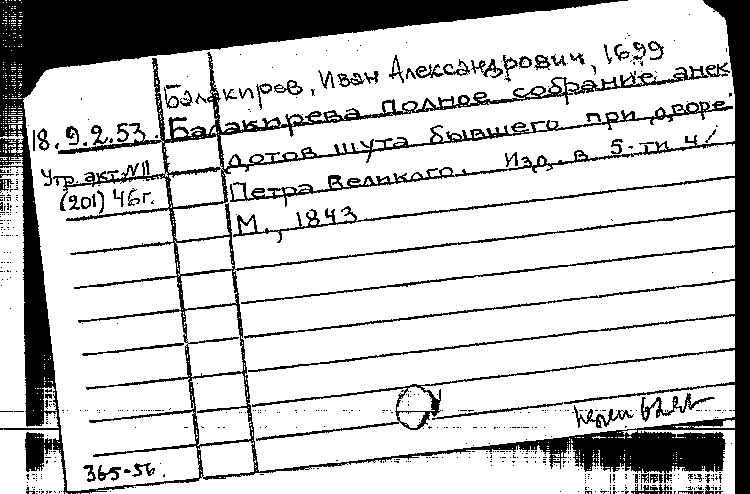 Балакирев, Иван Александрович, 1699
18.9.2.53. Балакирева полное собрание анек
дотов шута бывшего при дворе
Утр. акт. №11
Петра Великого. Изд. в 5-ти ч/
(201) 46г.
М., 1843
365-56.